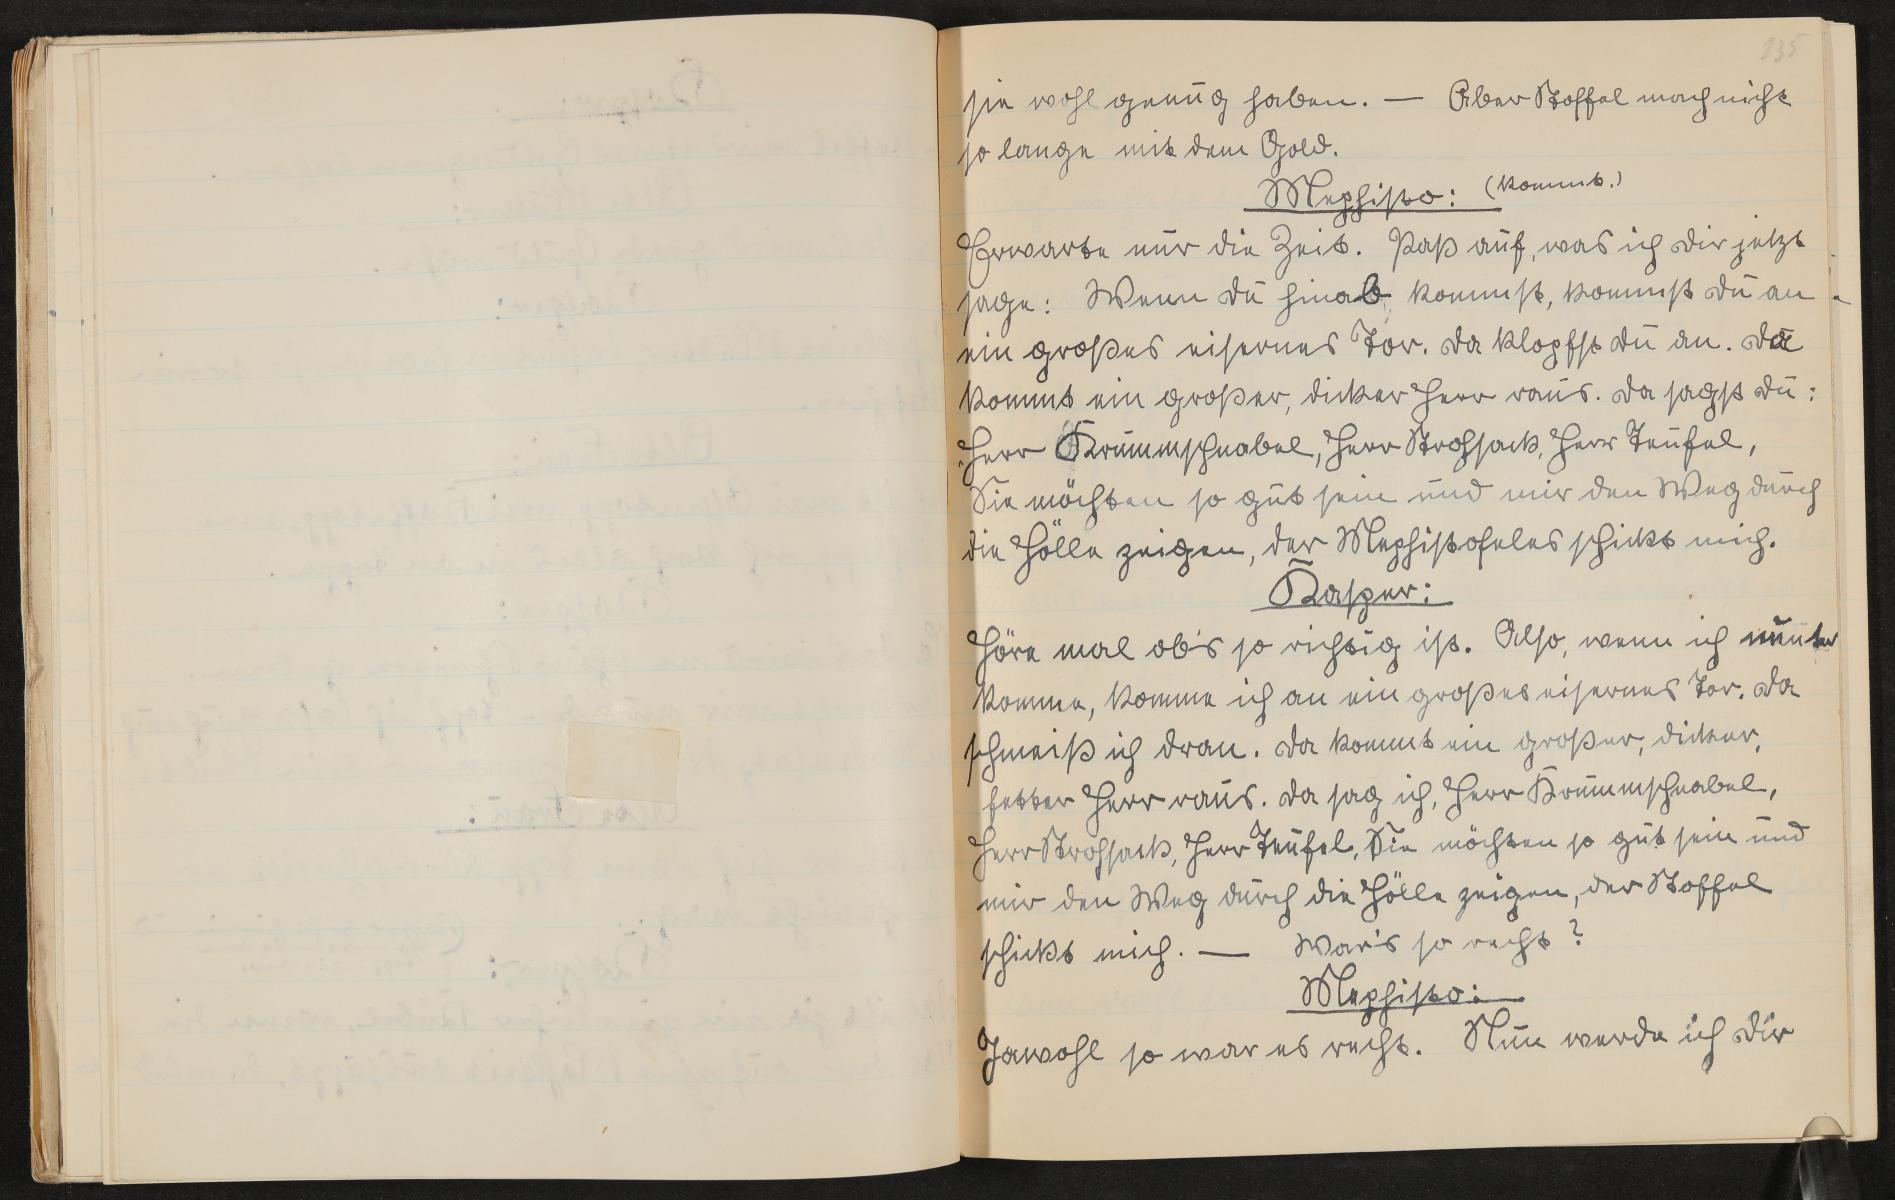 135
sie wohl genug haben. — Aber Stoffel mach nicht
so lange mit dem Gold.
Mephisto: (kommt.)
Erwarte nur die Zeit. Paß auf, was ich dir jetzt
sage: Wenn du hinab kommst, kommst du an
ein großes eisernes Tor. Da klopfst du an. Da
kommt ein großer, dicker Herr raus. Da sagst du:
Herr Krummschnabel, Herr Strohsack, Herr Teufel,
Sie möchten so gut sein und mir den Weg durch
die Hölle zeigen, der Mephistofeles schickt mich.
Kasper:
Höre mal ob's so richtig ist. Also, wenn ich nunter
komme, komme ich an ein großes eisernes Tor. Da
schmeiß ich dran. Da kommt ein großer, dicker,
fetter Herr raus. Da sag ich, Herr Krummschnabel,
Herr Strohsack, Herr Teufel, Sie möchten so gut sein und
mir den Weg durch die Hölle zeigen, der Stoffel
schickt mich. — War's so recht?
Mephisto:
Jawohl so war es recht. Nun werde ich dir